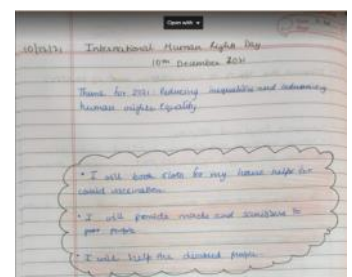 Open with
10/12/21 International Human Rights Day
10th December 2021
Theme for 2021: Reducing inequalities and advancing
human rights Equality
• I will book slots for my house helps for
covid vaccination.
• I will provide masks and sanitizers to
poor people
• I will help the disabled people.